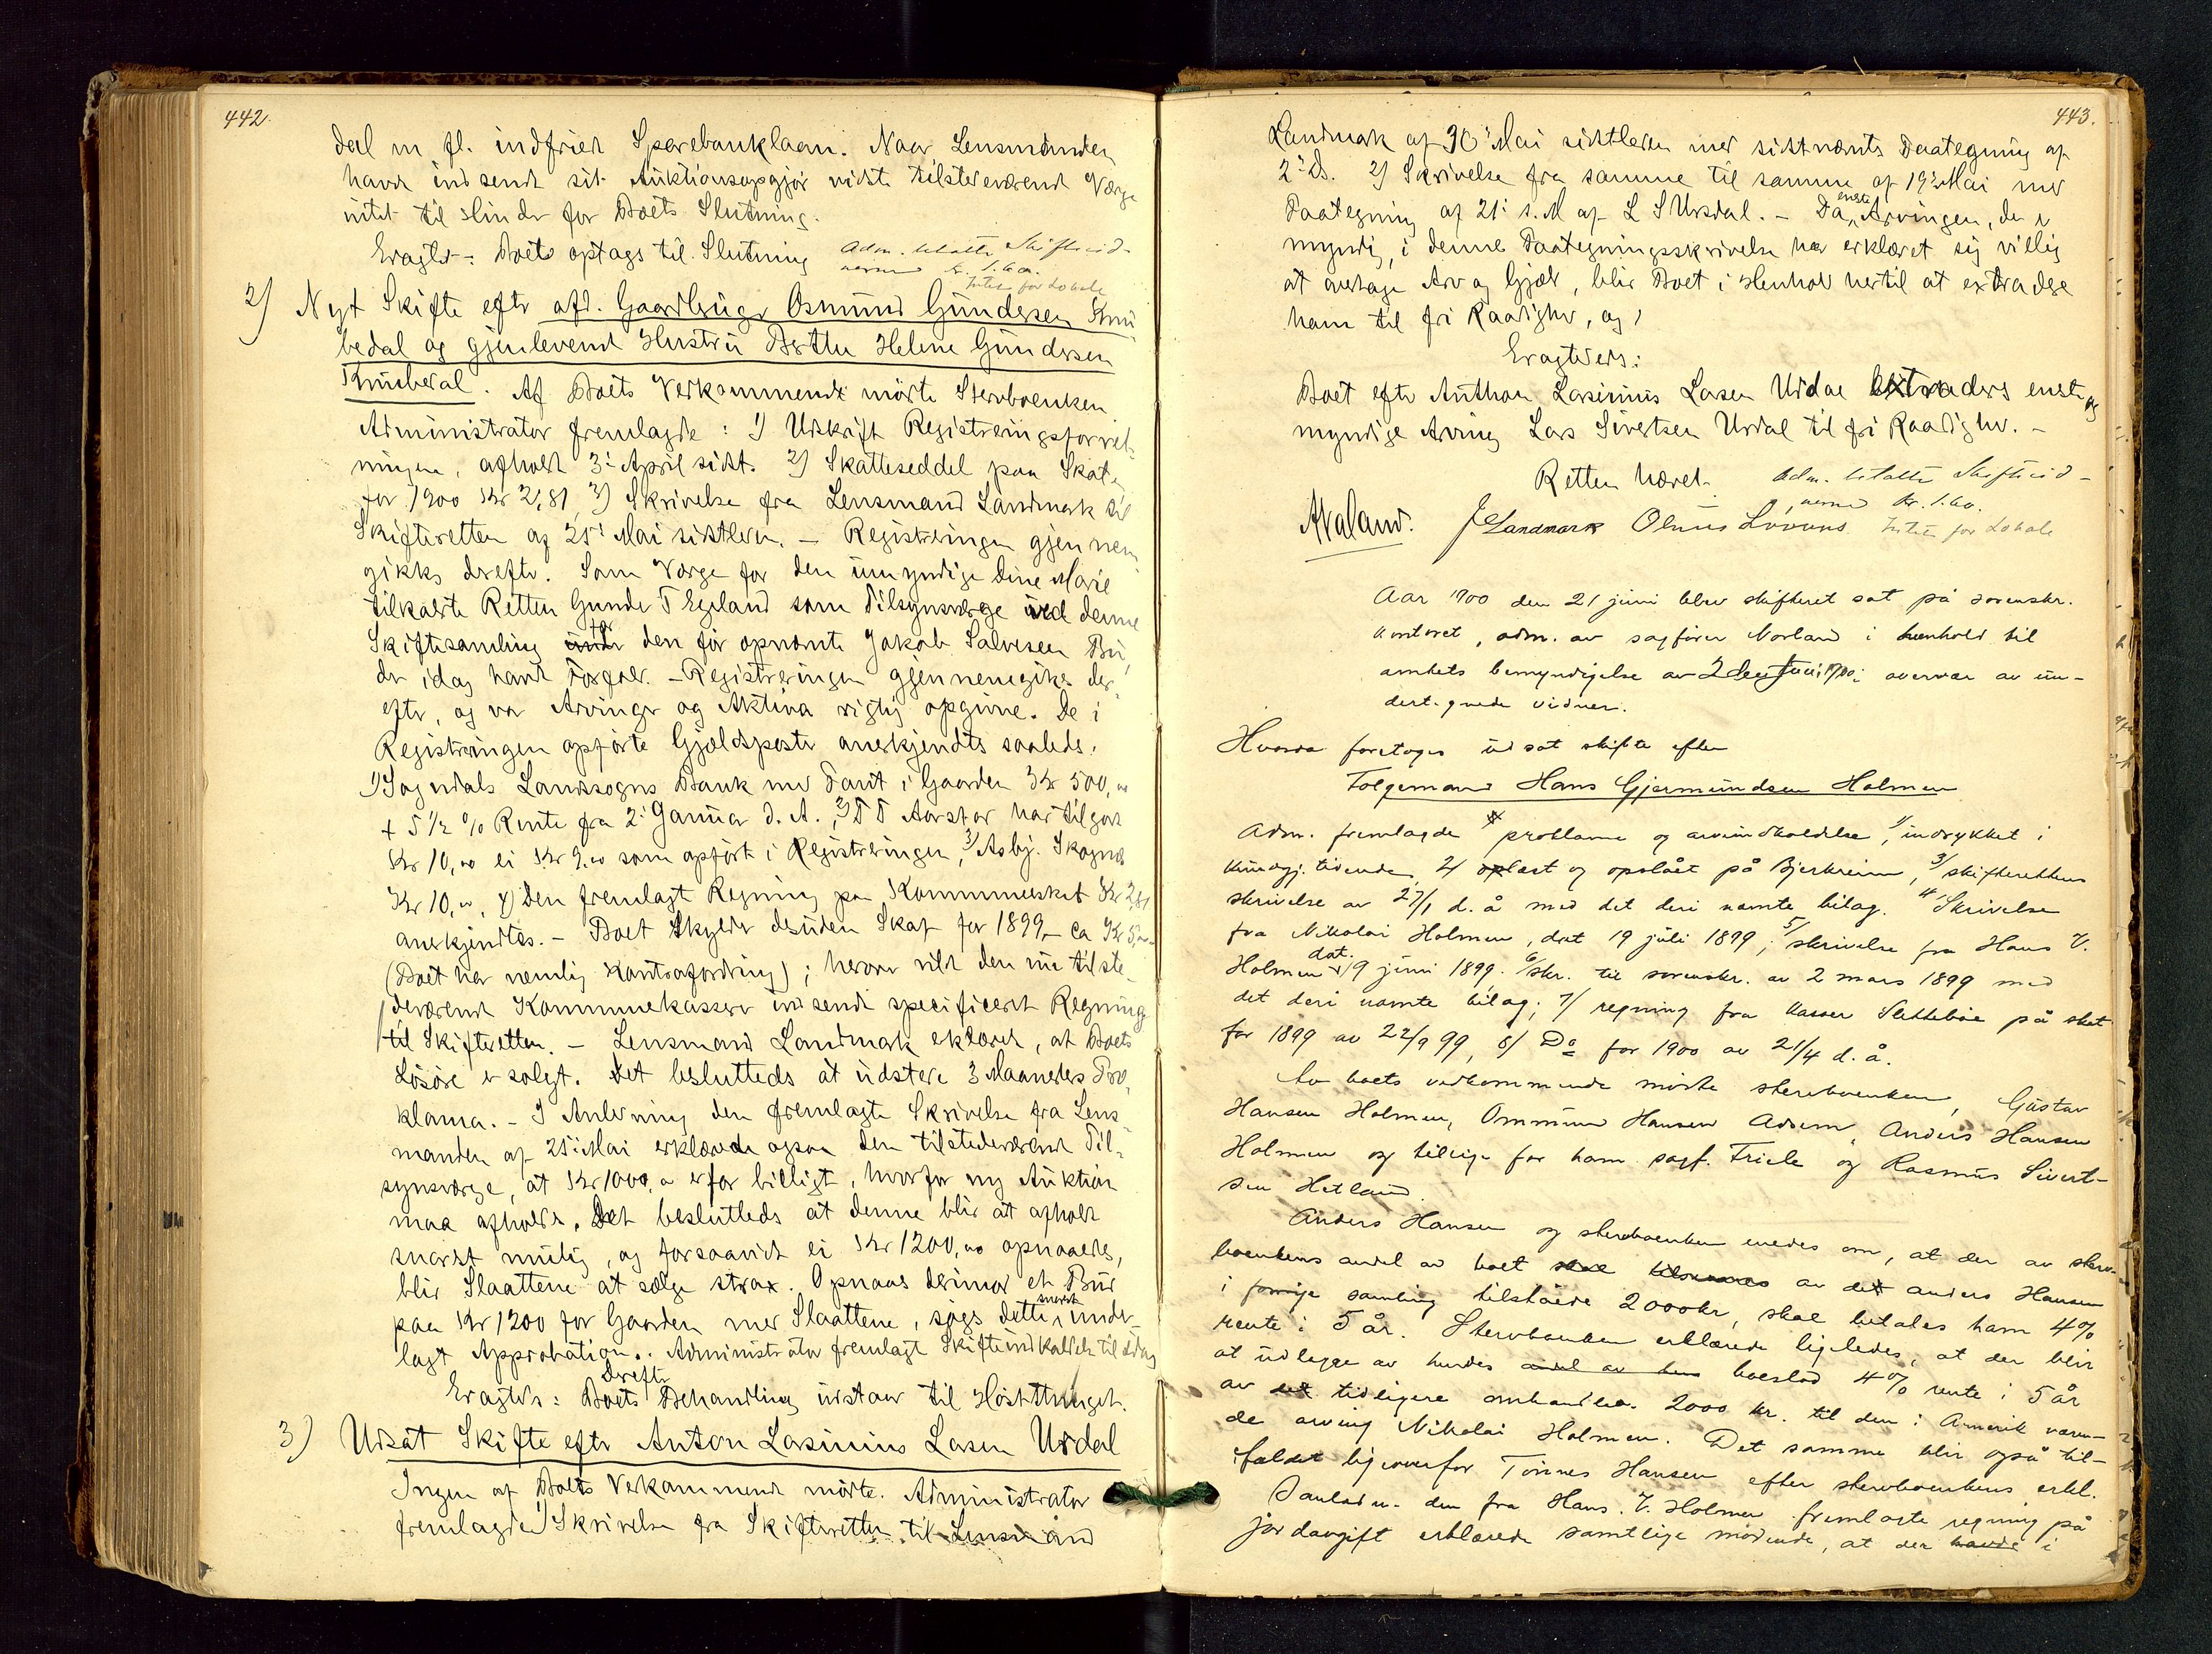 442.
dal m fl. indfriet Sparebanklaan. Naar Lensmanden
havde indsendt sit Auktionsopgjör vidste tilstedeværende Værge
intet til Hinder for Boets Slutning.
Eragtet: Boets optages til Slutning Adm. betalte Skiftevid-
nerne kr. 1.60.
Intet for Lokale
2) Nyt Skifte efter afd. Gaardbruger Osmund Gundersen Knu
bedal og gjenlevende Hustru Berthe Helene Gundersen
Knubedal. Af Boets Vedkommende mödte Stervboenken
Administrator fremlagde: 1) Udskrift Registreringsforret-
ningen, afholdt 3die April sidst. 2) Skatteseddel paa Skat
for 1900 Kr 2,81, 3) Skrivelse fra Lensmand Landmark til
Skifteretten af 25de Mai sidstleden. — Registreringen gjennem
gikks derefter. Som Værge for den umyndige Dine Marie
tilkaldte Retten Gunder T Egeland som Tilsynsværge ved denne
Skiftesamling for den för opnævnte Jakob Salvesen Bu,
der idag havde Forfald. — Registreringen gjennemgikks der-
efter, og var Arvinger og Aktiva rigtig opgivne. De i
Registreringen opförte Gjældsposter anerkjendtes saaledes:
1) Sogndals Landsogns Bank med Pant i Gaarden Kr 500,00
+ 5 1/2 % Rente fra 2. Januar d. A., 2) T T Aarstad har tilgode
Kr 10,00 ei Kr 9,00 som opfört i Registreringen, 3) Asbj. Skogned
Kr 10,00, 4) Den fremlagt Regning paa Kommuneskat Kr 2,81
anerkjendtes. — Boet skylder desuden Skat for 1899 — ca Kr 5,00
(Boet har nemlig Kontrafordring); herom vilde den nu tilste-
deværende Kommunekasserer indsende specificeret Regning
til Skifteretten. — Lensmand Landmark erklæred, at Boets
Lösöre er solgt. Det besluttedes at udstede 3 Maaneders Pro-
klama. — I Anledning den fremlagte Skrivelse fra Lens
manden af 25de Mai erklærede ogsaa den tilstedeværende Til-
synsværge, at Kr 1000,00 er for billigt, hvorfor ny Auktion
maa afholdes. Det besluttedes at denne blir at afholde
snarest mulig, og forsaavidt ei Kr 1200,00 opnaaedes,
blir Slaattene at sælge strax. Opnaaes derimod et Bud
paa Kr 1200 for Gaarden med Slaattene, söges dette snarest under-
lagt Approbation. Administrator fremlagt Skifteindkaldelse til idag
Derefter
Eragtedes: Boets Behandling udstaar til Hösttinget.
3) Udsat Skifte efter Anton Lasinius Lasen Urdal
Ingen af Boets Vedkommende mödte. Administrator
fremlagde 1) Skrivelse fra Skifteretten til Lensmand
443.
Landmark af 30. Mai sidstleden med sidstnævnts Paategning af
2. ds. 2) Skrivelse fra samme til samme af 19de Mai med
Paategning af 21. s. M af L S Ursdal. — Da eneste Arvingen, der er
myndig, i denne Paategningsskrivelse har erklæret sig villig
at overtage Arv og Gjæld, blir Boet i Henhold hertil at extradere
ham til fri Raadighed, og,
Eragtedes:
Boet efter Anthon Lasinius Lasen Urdal extraderes eneste og
myndige Arving Lars Sivertsen Urdal til fri Raadighed. —
Retten hævet. Adm. betalte Skiftevid-
nerne kr. 1.60.
AValand. J Landmark Olnus Lovans. Intet for Lokale
Aar 1900 den 21 juni blev skifteret sat på sorenskr.
kontoret, adm. av sagförer Norland i henhold til
amtets bemyndigelse av 2den Juni 1900 i overvær av un-
dertegnede vidner.
Hvorda foretoges udsat skifte efter
Folgemand Hans Gjermundsen Holmen
Adm. fremlagde proklama og arveindkaldelse, 1/ indrykket i
kundgj. tidende, 2/ oplæst og opslået på Bjerkreim, 3/ skifterettens
skrivelse av 27/1 d. å med det deri nævnte bilag. 4/ Skrivelse
fra Nikolai Holmen, dat 19 juli 1899; 5/ skrivelse fra Hans V.
Holmen dat. 19 juni 1899; 6/ skr. til sorenskr. av 2 mars 1899 med
det deri nævnte bilag; 7/ regning fra kasser Slettebøe på skat
for 1899 av 22/9 99, 8/ Do for 1900 av 21/4 d. å.
Av boets vedkommende mödte stervboenken, Gustav
Hansen Holmen, Ommund Hansen Adsem, Anders Hansen
Holmen og tillige for ham sagf. Friele og Rasmus Sivert-
sen Hetland.
Anders Hansen og stervboenken enedes om, at der av sterv-
boenkens andel av boet av det anders Hansen
i forrige samling tilståede 2000 kr, skal betales ham 4%
rente i 5 år. Stervboenken erklærede ligeledes, at der blir
at udlægge av hendes boeslod 4% rente i 5 år
av tidligere omhandlede 2000 kr. til den i Amerik være-
de arving Nikolai Holmen. Det samme blir også til-
fældet ligeoverfor Tönnes Hansen efter stervboenkens erkl.
Saulad m. den fra Hans. V. Holmen fremlagte regning på
jordavgift erklærede samtlige mödende, at der havde i